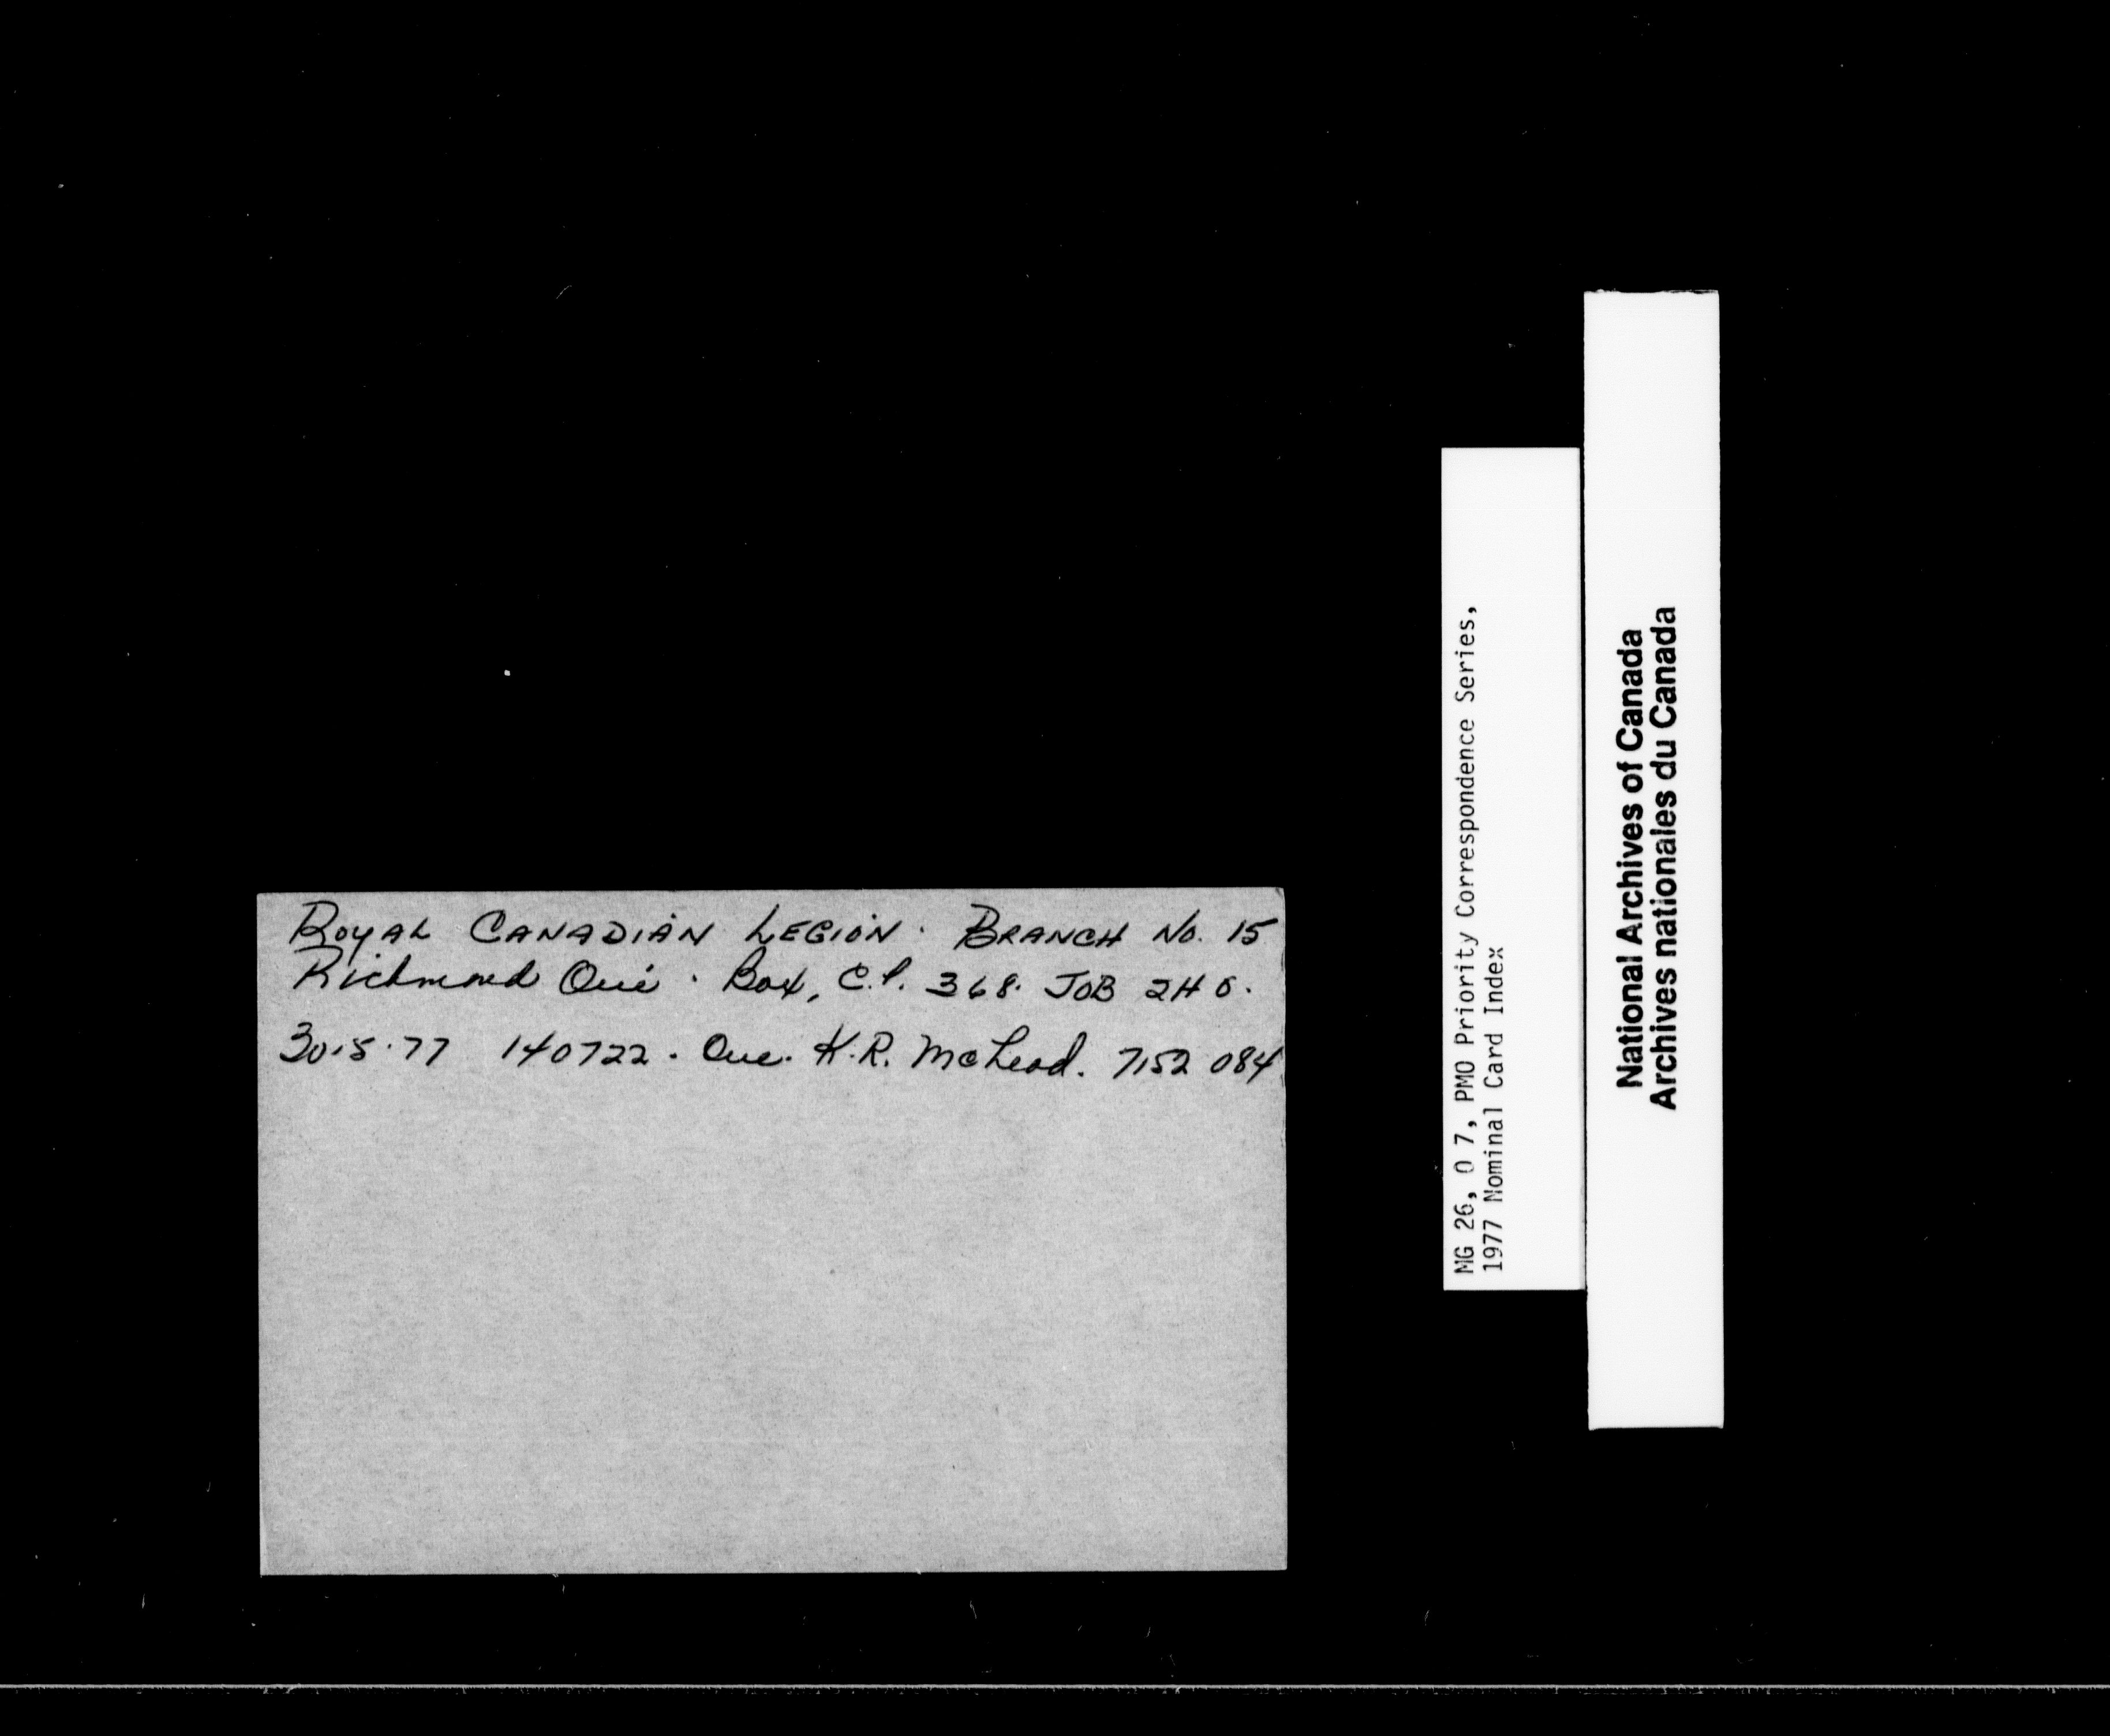 ROYAL CANADIAN LEGION. BRANCH No. 15
Richmond Qué. Box, C.P. 368. JOB 2HO.
30.5.77 140722. Que. K.R. McLeod. 7152 084
MG 26, O 7, PMO Priority Correspondence Series,
1977 Nominal Card Index
National Archives of Canada
Archives nationales du Canada